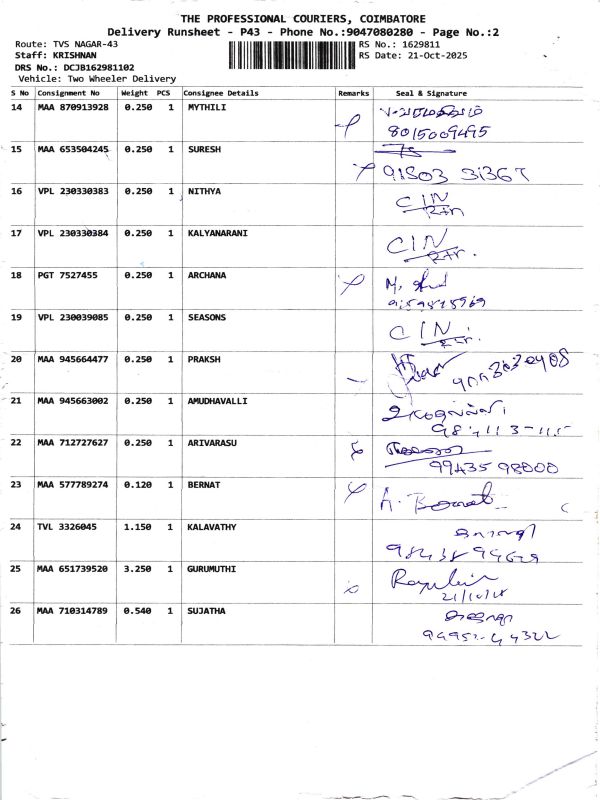 THE PROFESSIONAL COURIERS, COIMBATORE
Delivery Runsheet - P43 - Phone No.:9047080280 - Page No.:2
Route: TVS NAGAR-43 RS No.: 1629811
Staff: KRISHNAN RS Date: 21-Oct-2025
DRS No.: DCJB162981102
Vehicle: Two Wheeler Delivery
S No Consignment No Weight PCS Consignee Details Remarks Seal & Signature
14 MAA 870913928 0.250 1 MYTHILI
8015009495
15 MAA 653504245 0.250 1 SURESH
91503 31367
16 VPL 230330383 0.250 1 NITHYA CIN
17 VPL 230330384 0.250 1 KALYANARANI CIN
18 PGT 7527455 0.250 1 ARCHANA M.
19 VPL 230039085 0.250 1 SEASONS CIN
20 MAA 945664477 0.250 1 PRAKSH
21 MAA 945663002 0.250 1 AMUDHAVALLI
22 MAA 712727627 0.250 1 ARIVARASU
99435 98000
23 MAA 577789274 0.120 1 BERNAT A. Bernat
24 TVL 3326045 1.150 1 KALAVATHY
25 MAA 651739520 3.250 1 GURUMUTHI
26 MAA 710314789 0.540 1 SUJATHA